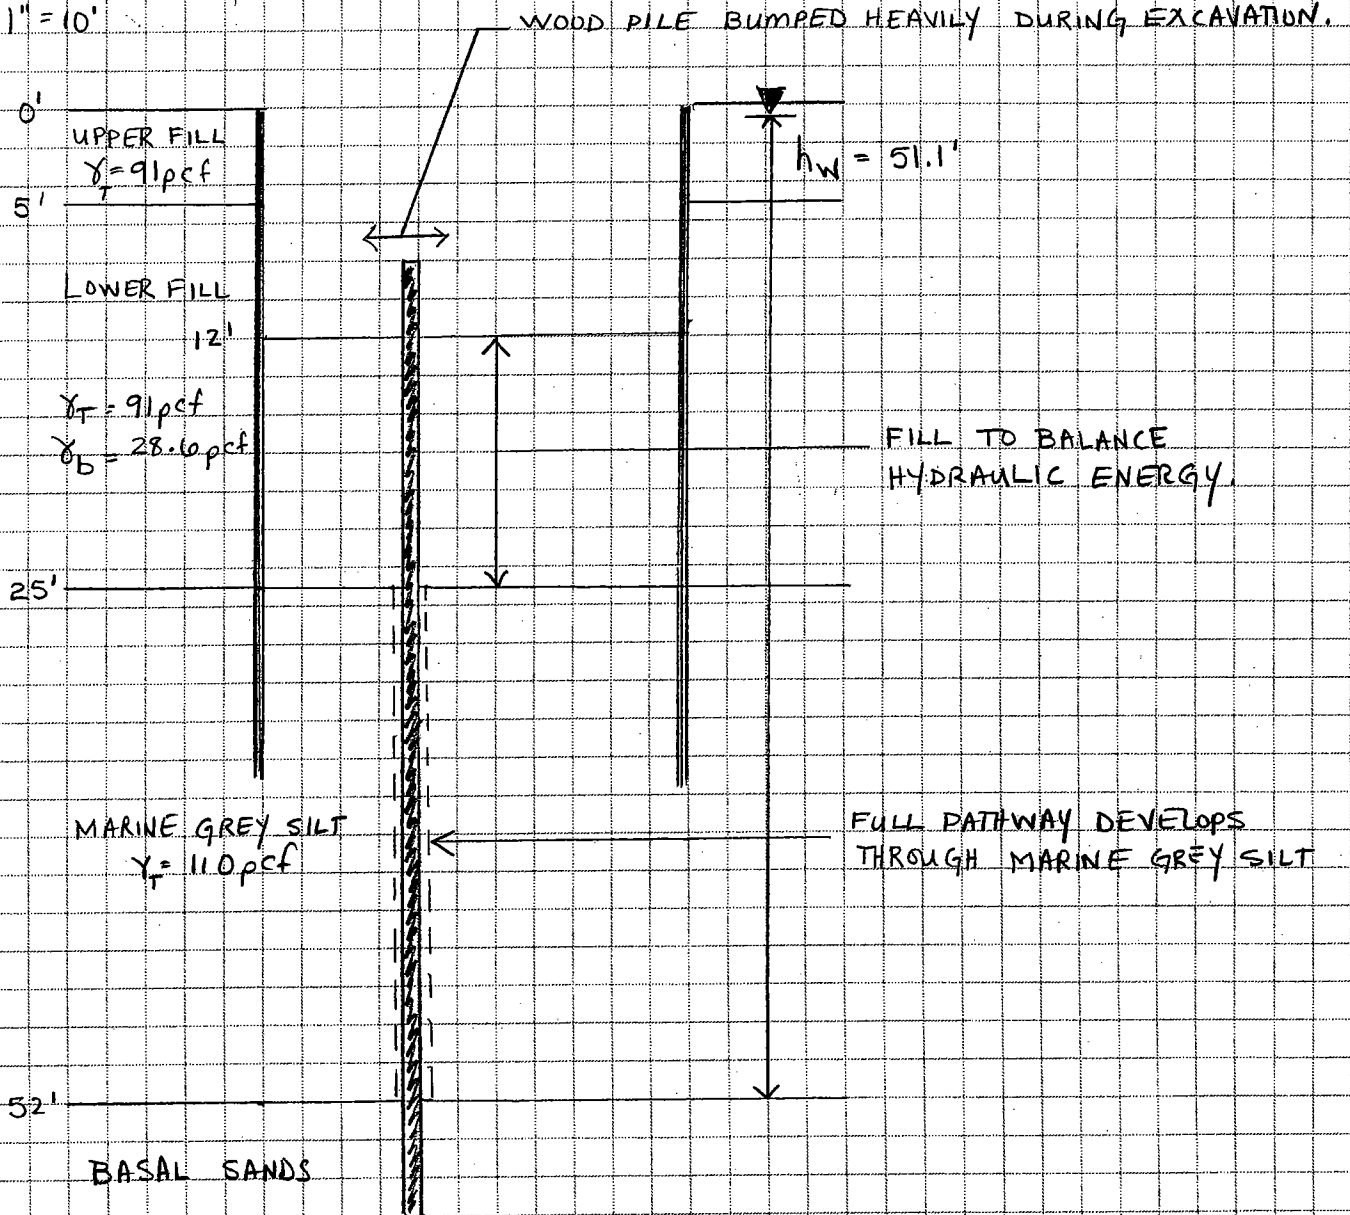 1" = 10'
WOOD PILE BUMPED HEAVILY DURING EXCAVATION.
0'
UPPER FILL
γT = 91pcf
5'
hw = 51.1'
LOWER FILL
12'
γT = 91pcf
γb = 28.6pcf
FILL TO BALANCE
HYDRAULIC ENERGY.
25'
MARINE GREY SILT
γT = 110pcf
FULL PATHWAY DEVELOPS
THROUGH MARINE GREY SILT
52'
BASAL SANDS